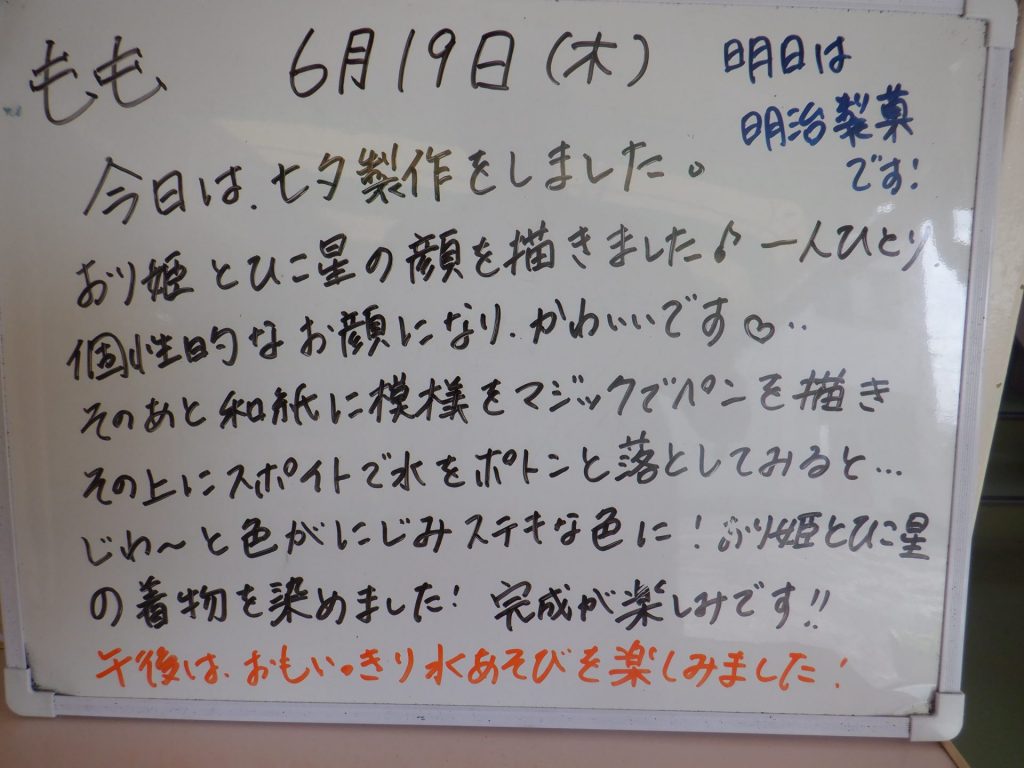 もも 6月19日(木)
明日は
明治製菓
です!
今日は、七夕製作をしました。
おり姫とひこ星の顔を描きました♪ 一人ひとり、
個性的なお顔になり、かわいいです♡..
そのあと和紙に模様をマジックでペンを描き
その上にスポイトで水をポトンと落としてみると…
じわ〜と色がにじみステキな色に!おり姫とひこ星
の着物を染めました! 完成が楽しみです!!
午後は、おもいっきり水あそびを楽しみました!